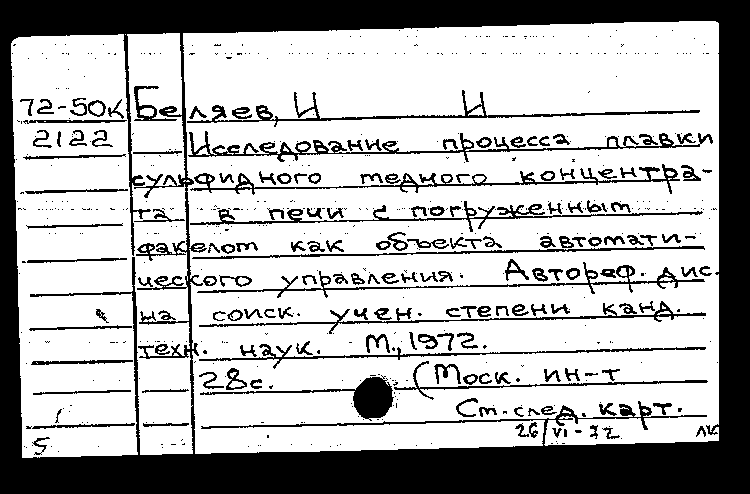 72-50к Беляев, И И
2122 Исследование процесса плавки
сульфидного медного концентра-
та в печи с погруженным
факелом как объекта автомати-
ческого управления. Автореф. дис.
на соиск. учен. степени канд.
техн. наук. М., 1972.
28с. (Моск. ин-т
См. след. карт.
5 26/VI-72 ЛК